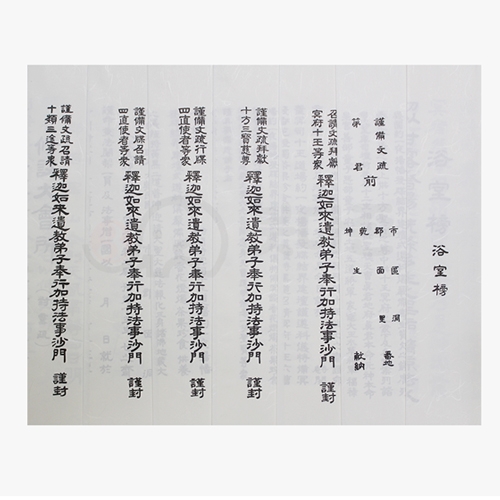 浴室榜
市 區 洞
郡 面 里 番地
乾
坤 生 納
謹備文疏
第 君 前
召請文疏拜獻
冥府十王等衆
釋迦如來遺敎弟子奉行加持法事沙門 謹封
謹備文疏拜獻
十方三寶慈尊
釋迦如來遺敎弟子奉行加持法事沙門 謹封
謹備文疏行牒
四直使者等衆
釋迦如來遺敎弟子奉行加持法事沙門 謹封
謹備文牒召請
四直使者等衆
釋迦如來遺敎弟子奉行加持法事沙門 謹封
謹備文疏召請
十類三途等衆
釋迦如來遺敎弟子奉行加持法事沙門 謹封